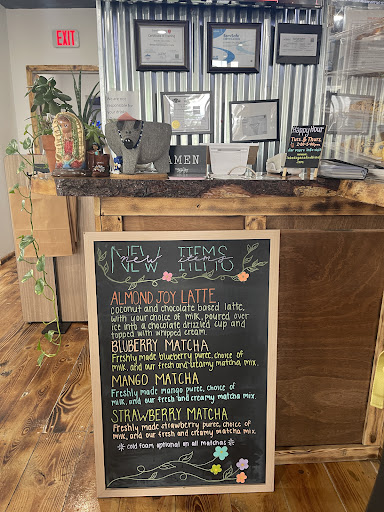 EXIT
AMEN
Happy Hour
NEW ITEMS
new items
ALMOND JOY LATTE
coconut and chocolate based latte,
with your choice of milk, poured over
ice into a chocolate drizzled cup and
topped with whipped cream.
BLUBERRY MATCHA
Freshly made blueberry puree, choice of
milk, and our fresh and creamy matcha mix.
MANGO MATCHA
Freshly made mango puree, choice of
milk, and our fresh and creamy matcha mix.
STRAWBERRY MATCHA
Freshly made strawberry puree, choice of
milk, and our fresh and creamy matcha mix.
* cold foam optional on all matchas *